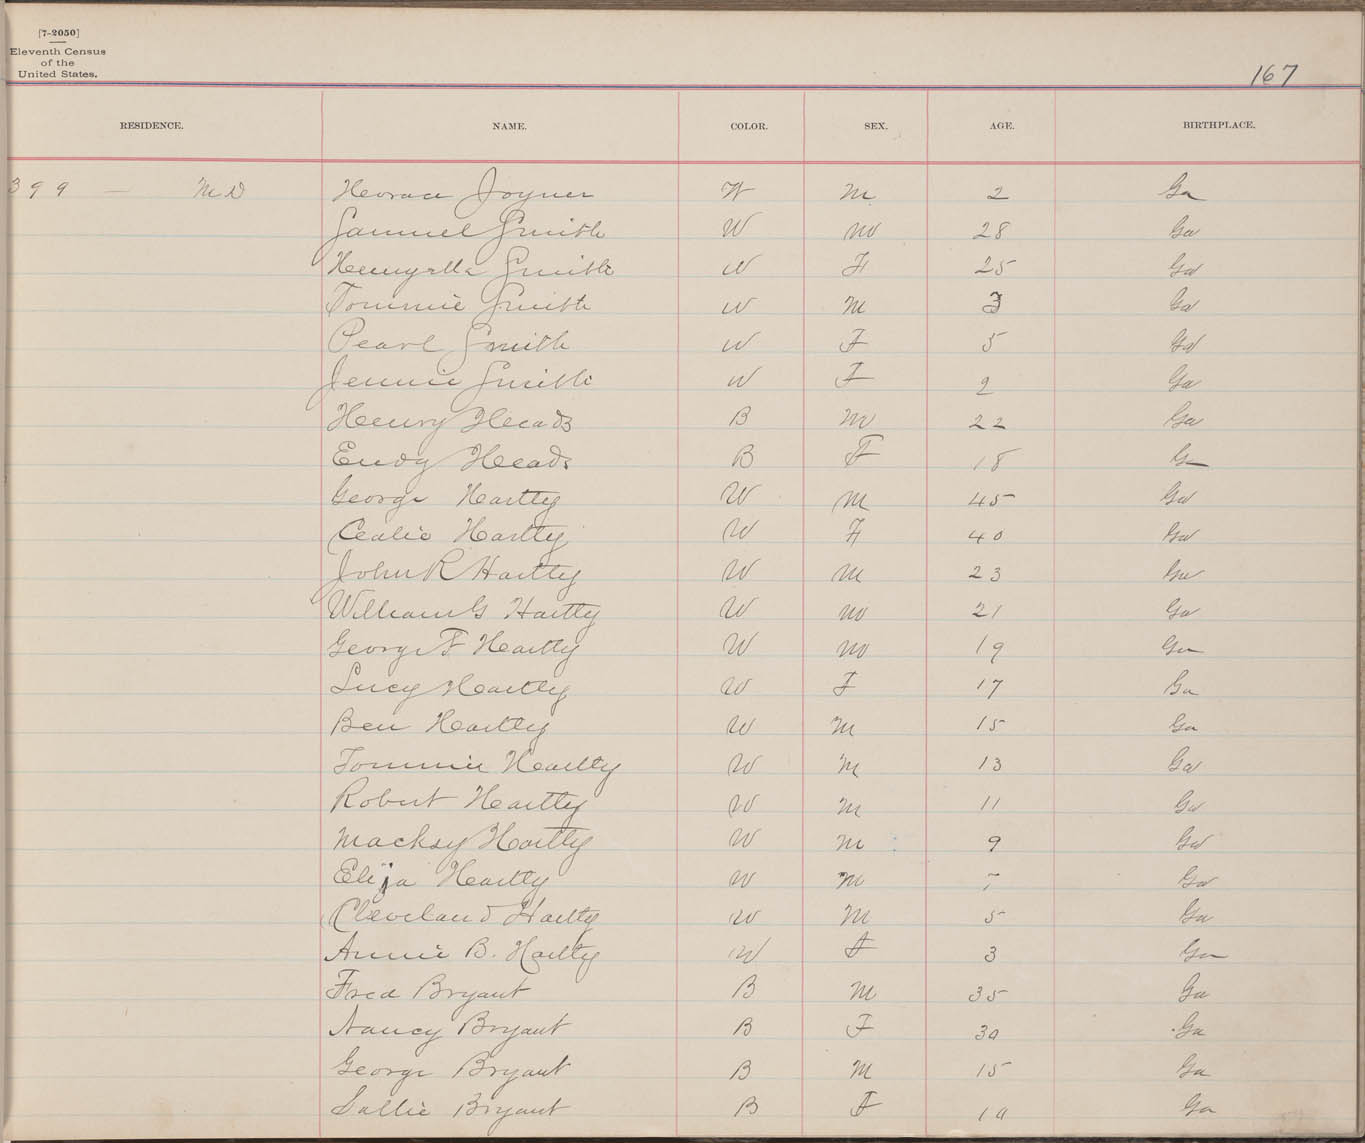 [7-2050]
Eleventh Census
of the
United States.
167
RESIDENCE. NAME. COLOR. SEX. AGE. BIRTHPLACE.
399 — M D Horace Joyner W M 2 Ga
Samuel Smith W M 28 Ga
Henyrlla Smith W F 25 Ga
Tommie Smith W M 3 Ga
Pearl Smith W F 5 Ga
Jennie Smith W F 2 Ga
Henry Heads B M 22 Ga
Endy Heads B F 18 Ga
George Hartley W M 45 Ga
Cealie Hartly W F 40 Ga
John R Hartly W M 23 Ga
William G Hartly W M 21 Ga
George F Hartly W M 19 Ga
Lucy Hartly W F 17 Ga
Ben Hartly W M 15 Ga
Tommie Hartly W M 13 Ga
Robert Hartly W M 11 Ga
Macksy Hartly W M 9 Ga
Elija Hartly W M 7 Ga
Cleveland Hartly W M 5 Ga
Annie B. Hartly W F 3 Ga
Fred Bryant B M 35 Ga
Nancy Bryant B F 30 Ga
George Bryant B M 15 Ga
Sallie Bryant B F 10 Ga